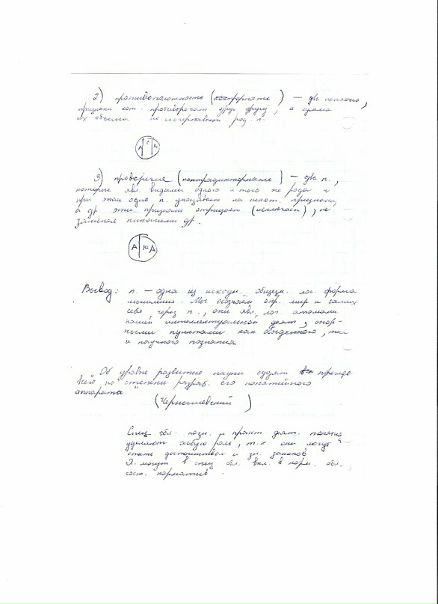 2) противоположность (контрарные) — два понятия,
признаки кот. противоречат друг другу, а сумма
их объёма не исчерпывает род. п.
А С В
3) противоречие (контрадикторные) — два п.,
которые явл. видами одного и того же рода и
при этом одно п. указывает на некот. признаки,
а др. эти признаки отрицает (исключает), не
заменяя никакими др.
А не А
Вывод: п. — одна из исходн. общечел. лог. форма
мышления. Мы познаём окр. мир и самих
себя через п., они явл. лог. атомами
нашей интеллектуальной деят., опор-
ными пунктами как обыденного, так
и научного познания
"Об уровне развития науки судят прежде
всего по степени разраб. его понятийного
аппарата"
(Чернышевский)
Спец. обл. позн. и практ. деят.
уделяют особую роль, т.к. они могут
стать достоинством и зн. законов
Э. могут в спец. обл. вкл. в норм. обл.
сост. нормативов.